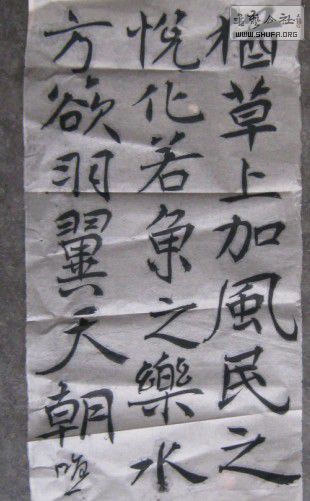 猶草上加風民之
悅化若魚之樂水
方欲羽翼天朝唯
書藝公社
WWW.SHUFA.ORG